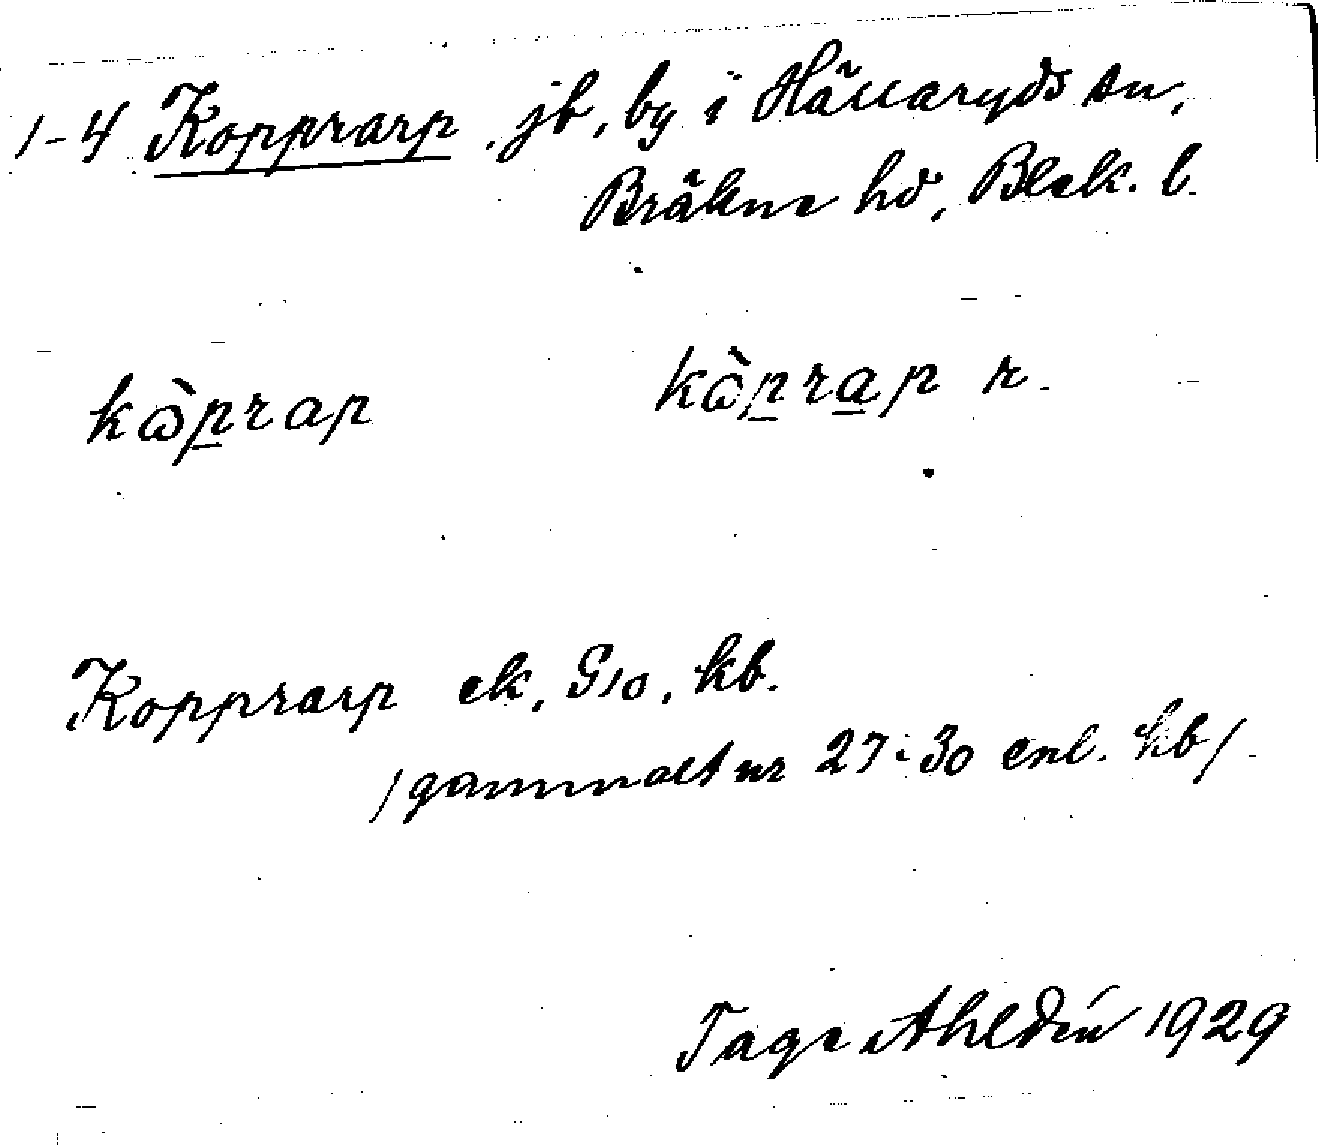 1-4 Kopprarp, jb, by i Hällaryds sn,
Bräkne hd, Blek. l.
kὼprap kὼprap r.
Kopprarp ek, G10, kb.
/gammalt nr 27-30 enl. kb/.
Tage Ahldén 1929